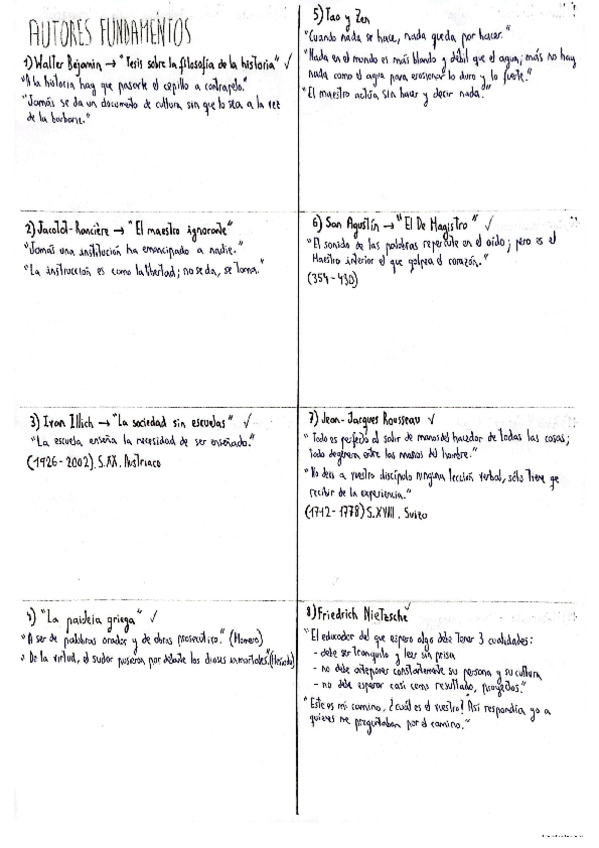 AUTORES FUNDAMENTOS
1) Walter Bejamin → "Tesis sobre la filosofía de la historia" ✓
"A la historia hay que pasarle el cepillo a contrapelo."
"Jamás se da un documento de cultura sin que lo sea a la vez
de la barbarie."
2) Jacotot-Rancière → "El maestro ignorante"
"Jamás una institución ha emancipado a nadie."
"La instrucción es como la libertad; no se da, se toma."
3) Ivan Illich → "La sociedad sin escuelas" ✓
"La escuela enseña la necesidad de ser enseñado."
(1926-2002). S.XX. Austriaco
4) "La paideia griega" ✓
"A ser de palabras orador y de obras prosecutivo." (Homero)
"De la virtud, el sudor pusieron por delante los dioses inmortales." (Hesíodo)
5) Tao y Zen
"Cuando nada se hace, nada queda por hacer."
"Nada en el mundo es más blando y débil que el agua; más no hay
nada como el agua para erosionar lo duro y lo fuerte."
"El maestro actúa sin hacer y decir nada."
6) San Agustín → "El De Magistro" ✓
"El sonido de las palabras repercute en el oído; pero es el
Maestro interior el que golpea el corazón."
(354-430)
7) Jean-Jacques Rousseau ✓
"Todo es perfecto al salir de manos del hacedor de todas las cosas;
todo degenera entre las manos del hombre."
"No deis a vuestro discípulo ninguna lección verbal, sólo tiene qe
recibir de la experiencia."
(1712-1778) S.XVIII. Suizo
8) Friedrich Nietzsche ✓
"El educador del que espero algo debe tener 3 cualidades:
- debe ser tranquilo y leer sin prisa
- no debe anteponer constantemente su persona y su cultura
- no debe esperar casi como resultado, proyectos."
"Este es mi camino, ¿cuál es el vuestro? Así respondía yo a
quienes me preguntaban por el camino."